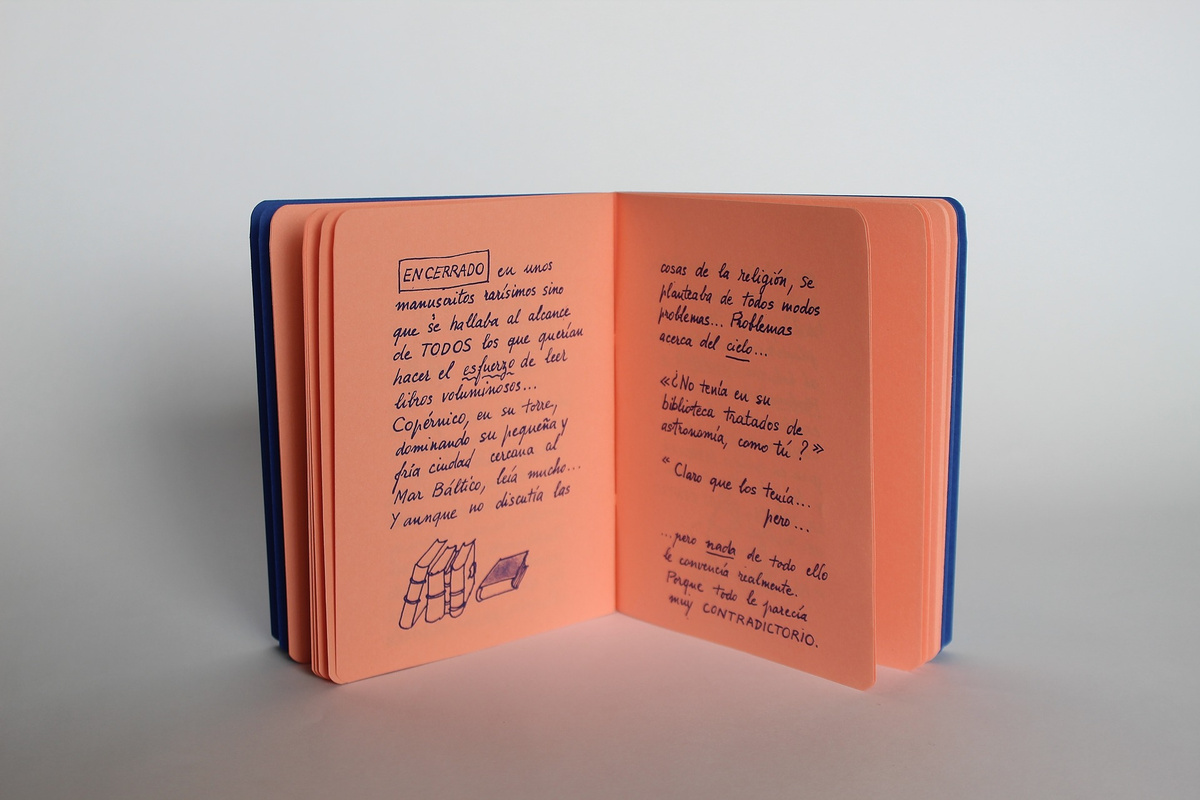 ENCERRADO en unos
manuscritos rarísimos sino
que se hallaba al alcance
de TODOS los que querían
hacer el esfuerzo de leer
libros voluminosos...
Copérnico, en su torre,
dominando su pequeña y
fría ciudad cercana al
Mar Báltico, leía mucho...
Y aunque no discutía las
cosas de la religión, se
planteaba de todos modos
problemas... Problemas
acerca del cielo...
«¿No tenía en su
biblioteca tratados de
astronomía, como tú?»
« Claro que los tenía...
pero...
...pero nada de todo ello
le convencía realmente.
Porque todo le parecía
muy CONTRADICTORIO.